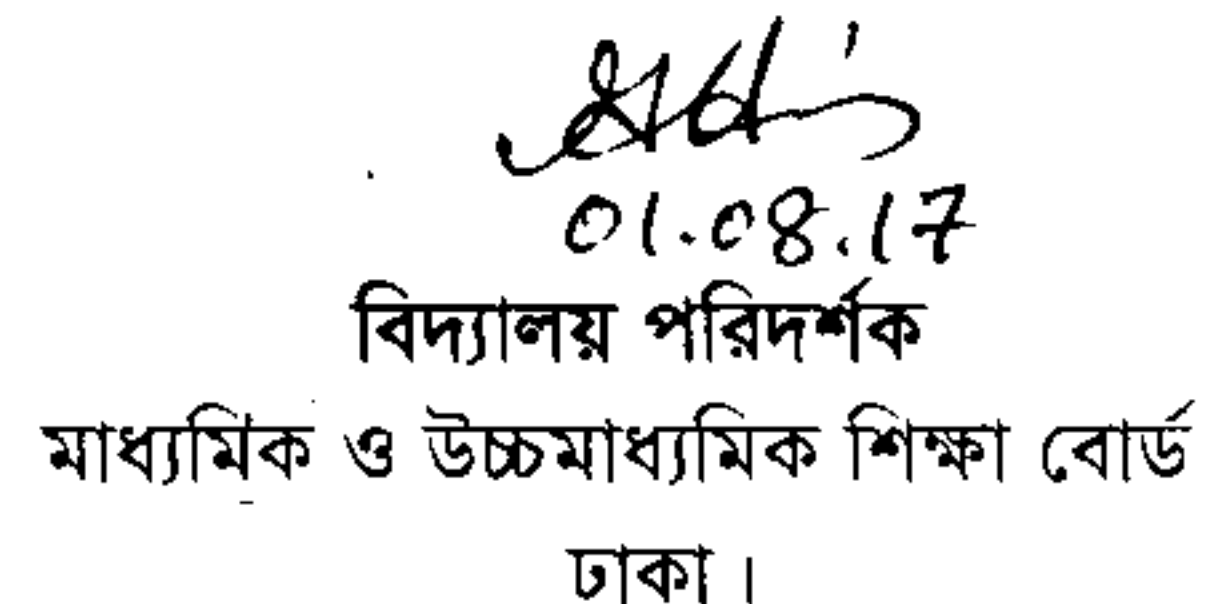 01.08.17
বিদ্যালয় পরিদর্শক
মাধ্যমিক ও উচ্চমাধ্যমিক শিক্ষা বোর্ড
ঢাকা।